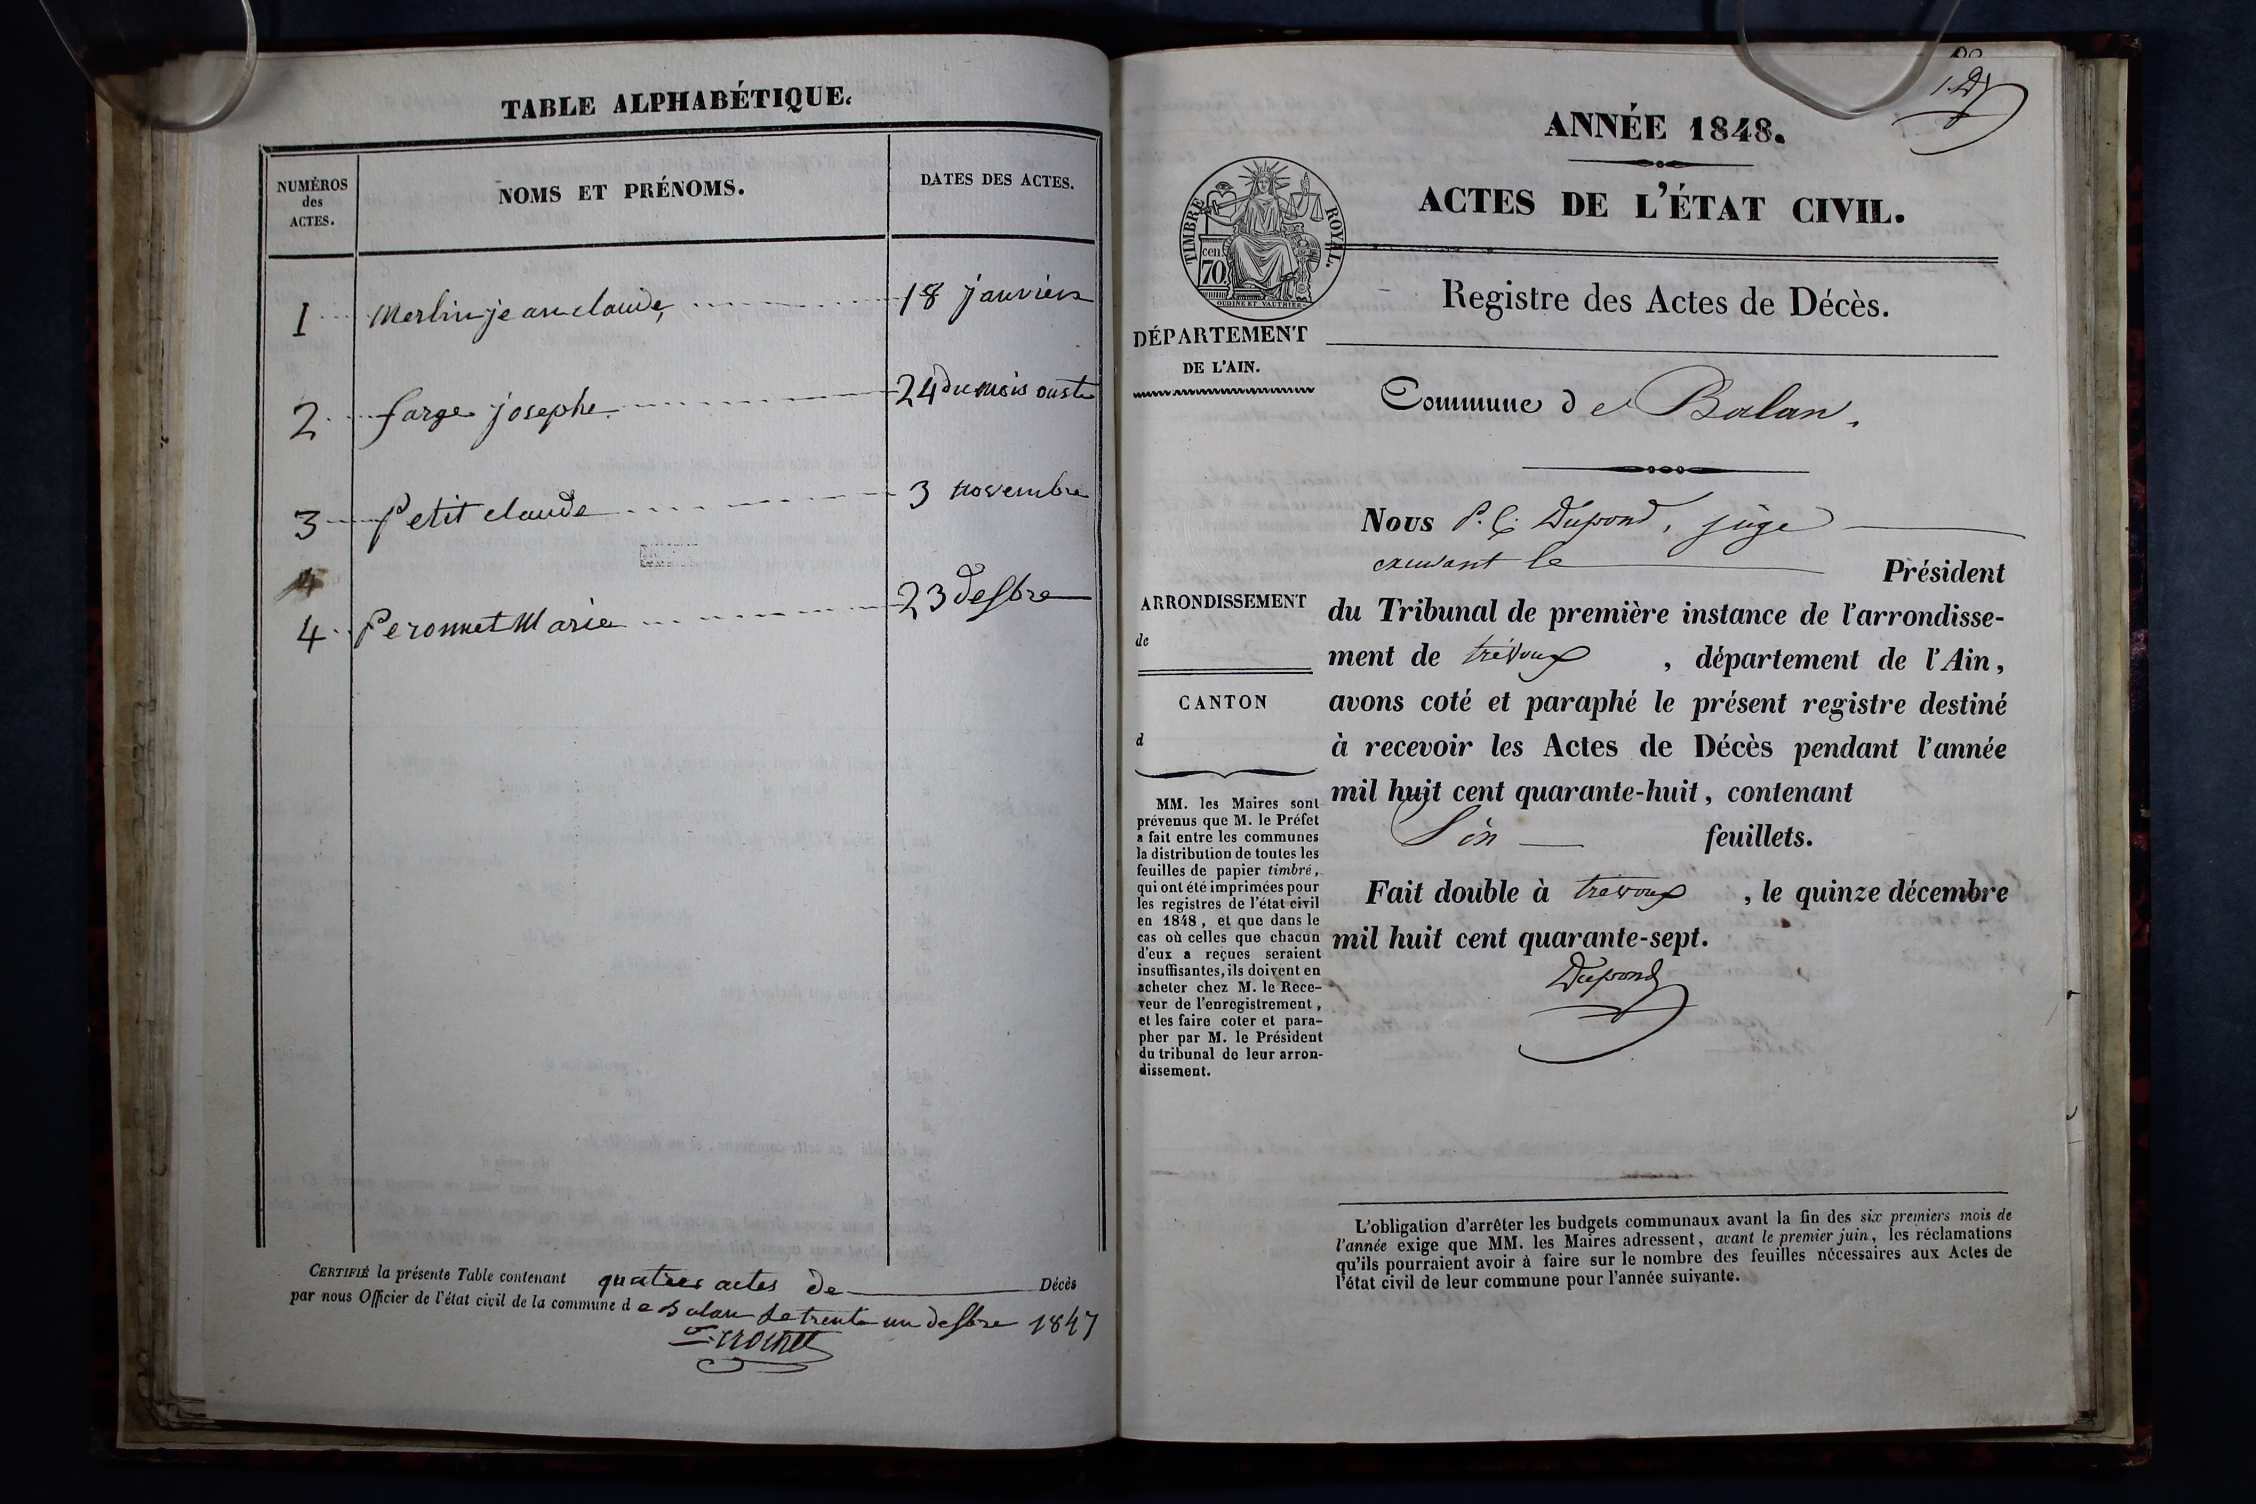 TABLE ALPHABÉTIQUE.
NUMÉROS
des
ACTES.
NOMS ET PRÉNOMS.
DATES DES ACTES.
1 Merlin jean claude 18 janvier
2 farge josephe 24 du mois oust
3 Petit claude 3 novembre
4
4 Peronnet Marie 23 desbre
CERTIFIÉ la présente Table contenant quatres actes de Décès
par nous Officier de l'état civil de la commune d e Balan Le trente un desbre 1847
ANNÉE 1848.
ACTES DE L'ÉTAT CIVIL.
TIMBRE ROYAL.
cen.
70
OUDINE ET VAUTHIER
Registre des Actes de Décès.
DÉPARTEMENT
DE L'AIN.
Commune d e Balan.
Nous P. C. Dupond, juge
exerçant le Président
du Tribunal de première instance de l'arrondisse-
ment de trévoux , département de l'Ain,
avons coté et paraphé le présent registre destiné
à recevoir les Actes de Décès pendant l'année
mil huit cent quarante-huit, contenant
Six feuillets.
Fait double à trevoux , le quinze décembre
mil huit cent quarante-sept.
Dupond
ARRONDISSEMENT
de
CANTON
d
MM. les Maires sont
prévenus que M. le Préfet
a fait entre les communes
la distribution de toutes les
feuilles de papier timbré,
qui ont été imprimées pour
les registres de l'état civil
en 1848, et que dans le
cas où celles que chacun
d'eux a reçues seraient
insuffisantes, ils doivent en
acheter chez M. le Rece-
veur de l'enregistrement,
et les faire coter et para-
pher par M. le Président
du tribunal de leur arron-
dissement.
L'obligation d'arrêter les budgets communaux avant la fin des six premiers mois de
l'année exige que MM. les Maires adressent, avant le premier juin, les réclamations
qu'ils pourraient avoir à faire sur le nombre des feuilles nécessaires aux Actes de
l'état civil de leur commune pour l'année suivante.